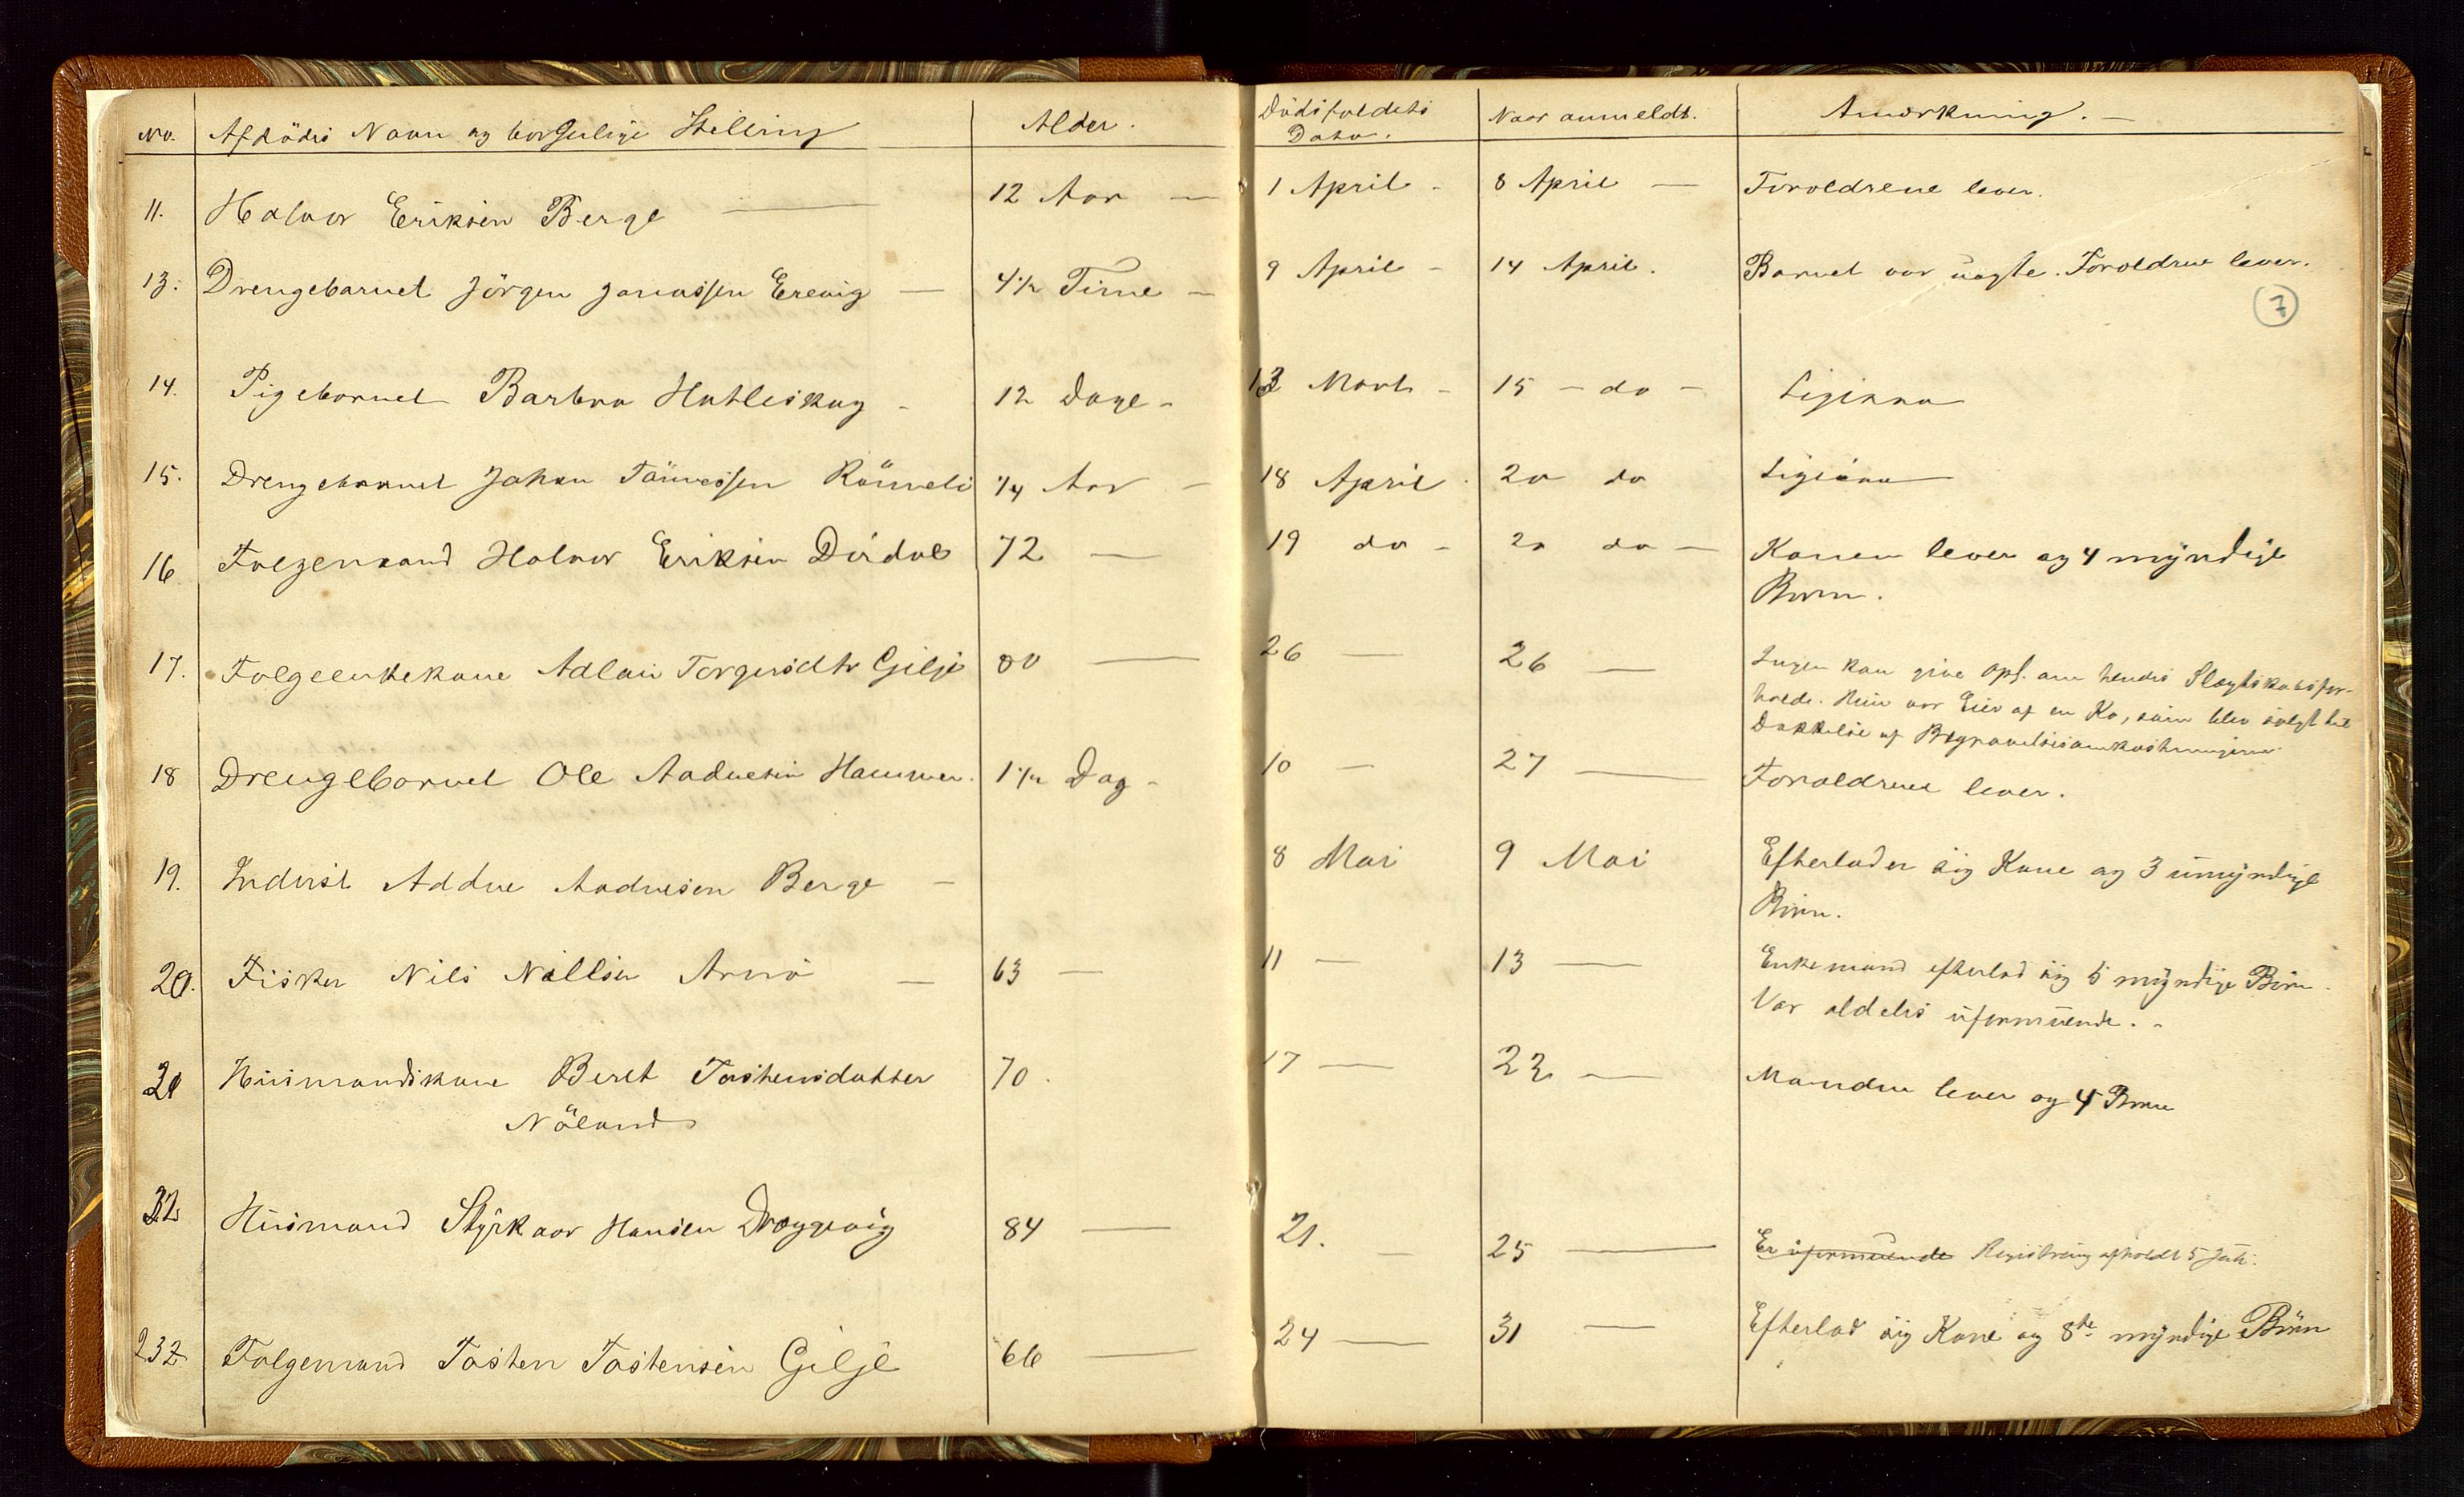 No. Afdödes Navn og borgerlige Stilling Alder. Dödsfaldets Naar anmeldt. Anmærkning.
Dato.
11. Halvor Eriksen Berge 12 Aar 1 April 8 April Forældrene lever.
13. Drengebarnet Jörgen Jonassen Erevig 4 1/2 Time 9 April 14 April. Barnet var uægte. Forældrene lever.
7
14. Pigebarnet Barbra Hatleskog 12 Dage 13 Marts 15 do Ligesaa
15. Drengebarnet Johan Tönnessen Römeli 1/4 Aar 18 April 20 do Ligesaa
16 Folgemand Halvor Eriksen Dirdal 72 19 do 20 do Konen lever og 4 myndige
Börn.
17. Folgeenkekone Adlau Torgersdtr Gilje 80 26 26 Ingen kan give Opl. om hendes Slægtskabsfor-
holde. Hun var Eier af en Ko, som blev solgt til
Dækkelse af Begravelsesomkostningerne
18 Drengebarnet Ole Aadnesen Hammer. 1 1/2 Dag 10 27 Forældrene lever.
19. Inderst Addne Aadnesen Berge 8 Mai 9 Mai Efterlader sig Kone og 3 umyndige
Börn.
20. Fisker Nils Nillsen 63 11 13 Enkemand efterlod sig 5 myndige Börn.
Var aldeles uformuende.
21 Husmandskone Beret Tostensdatter 70. 17 22 Manden lever og 4 Börn
Nöland
22 Husmand Styrkaar Hansen Dræggevig 84 21. 25 Er uformuende Registrering afholdt 5 Juli.
232 Folgemand Tosten Tostensen Gilje 66 24 31 Efterlod sig Kone og 8te myndige Börn